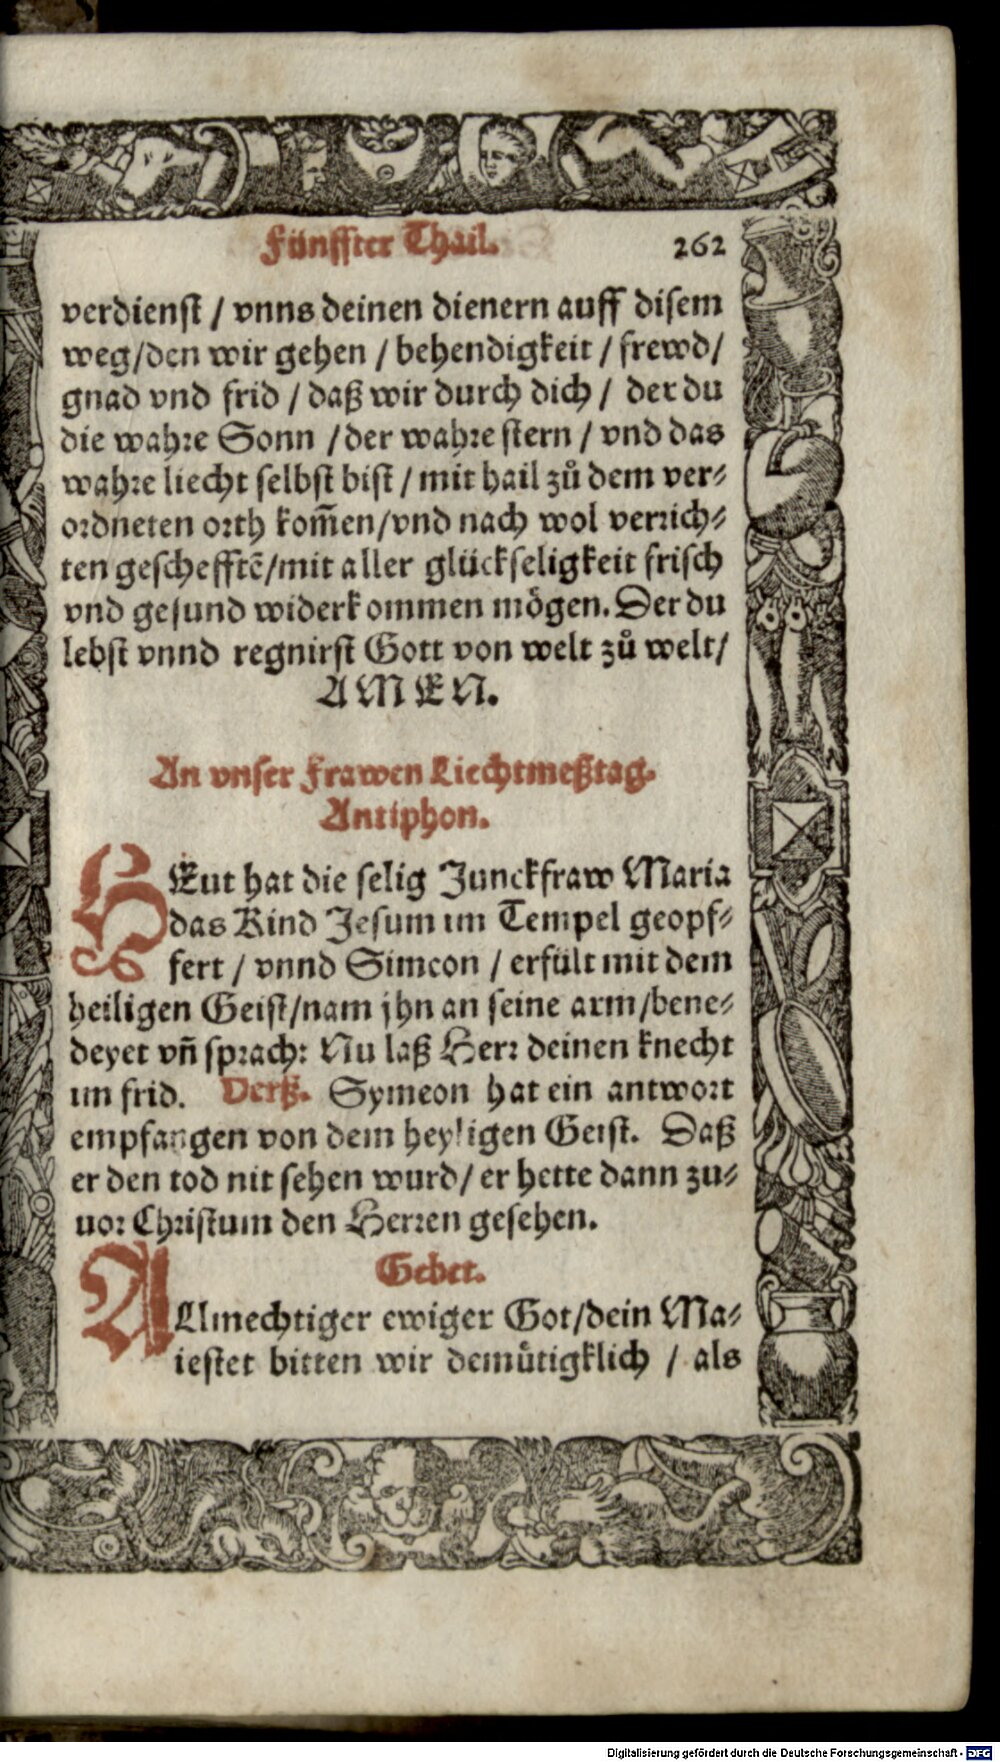 Fünffter Thail. 262
verdienst / vnns deinen dienern auff disem
weg/den wir gehen / behendigkeit / frewd/
gnad vnd frid / daß wir durch dich / der du
die wahre Sonn / der wahre stern / vnd das
wahre liecht selbst bist / mit hail zů dem ver-
ordneten orth kom̃en/vnd nach wol verrich-
ten geschefftẽ/mit aller glückseligkeit frisch
vnd gesund widerkommen mögen. Der du
lebst vnnd regnirst Gott von welt zů welt/
AMEN.
An vnser Frawen Liechtmeßtag.
Antiphon.
HEut hat die selig Junckfraw Maria
das Kind Jesum im Tempel geopf-
fert / vnnd Simeon / erfült mit dem
heiligen Geist/nam jhn an seine arm/bene-
deyet vñ sprach: Nu laß Herr deinen knecht
im frid. Verß. Symeon hat ein antwort
empfangen von dem heyligen Geist. Daß
er den tod nit sehen wurd/ er hette dann zu-
uor Christum den Herren gesehen.
Gebet.
ALlmechtiger ewiger Got/dein Ma-
iestet bitten wir demůtigklich / als
Digitalisierung gefördert durch die Deutsche Forschungsgemeinschaft - DFG